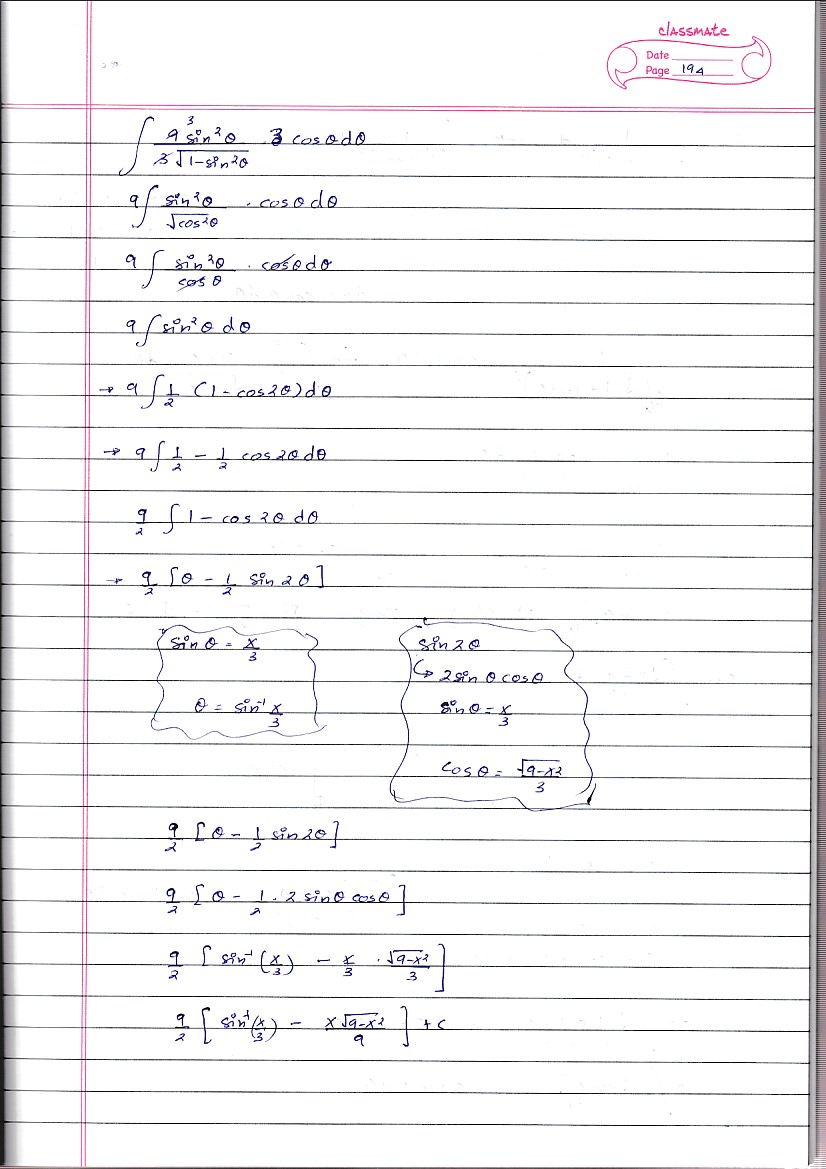 classmate
Date
Page 194
∫ 9 3 sin²θ / 3√1-sin²θ 3 cosθdθ
9∫ sin²θ / √cos²θ . cosθdθ
9∫ sin²θ / cosθ . cosθdθ
9∫ sin²θ dθ
→ 9∫ 1/2 (1-cos2θ)dθ
→ 9∫ 1/2 - 1/2 cos2θdθ
9/2 ∫ 1-cos2θ dθ
→ 9/2 [θ - 1/2 sin2θ]
sinθ = x/3
θ = sin⁻¹ x/3
sin2θ
↳ 2sinθcosθ
sinθ = x/3
cosθ = √9-x² / 3
9/2 [θ - 1/2 sin2θ]
9/2 [θ - 1/2 . 2 sinθ cosθ]
9/2 [sin⁻¹(x/3) - x/3 . √9-x² / 3]
9/2 [sin⁻¹(x/3) - x√9-x² / 9] + c